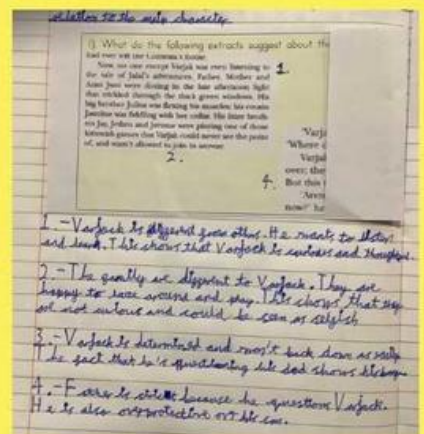 relation to the main character
Q. What do the following extracts suggest about the
had ever left the Contessa's house.
Now, no one except Varjak was even listening to
the tale of Jalal's adventures. Father, Mother and
Aunt Juni were dozing in the late afternoon light
that trickled through the thick green windows. His
big brother Julius was flexing his muscles; his cousin
Jasmine was fiddling with her collar. His litter broth-
ers Jay, Jethro and Jerome were playing one of those
kittenish games that Varjak could never see the point
of, and wasn't allowed to join in anyway.
1.
2.
'Varja
'Where
Varjak
over; the
4. But this
'Aren
now?' he
1.-Varjack is different from others. He wants to listen
and learn. This shows that Varjack is curious and thoughtful
2.-The family are different to Varjack. They are
happy to laze around and play. This shows that they
are not curious and could be seen as selfish
3.-Varjack is determined and won't back down as easily
The fact that he's questioning his dad shows
4.-Father is strict because he questions Varjack.
He is also overprotective over his son.